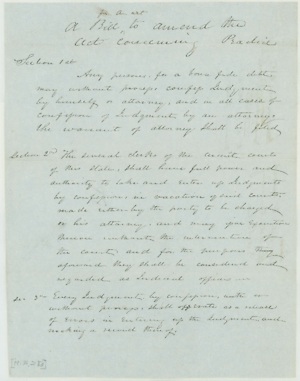 for an act
A Bill, to amend the
Act concerning Practice
Section 1st
Any person, for a bona fide debt
may without process confess Judgment
by himself or attorney, and in all cases of
confession of Judgment by an attorney
the warrant of attorney shall be filed
Section 2d The several clerks of the circuit courts
of this state, shall have full power and
authority to take and enter up Judgments
by confession, in vacation of said courts
made either by the party to be charged
or his attorney, and may issue Execution
thereon without the intervention of
the court, and for the purposes
aforesaid they shall be considered and
regarded as Judicial officers
Sec 3rd Every Judgment by confession, with or
without process, shall operate as a release
of Errors in entering up the Judgment and
making a record thereof